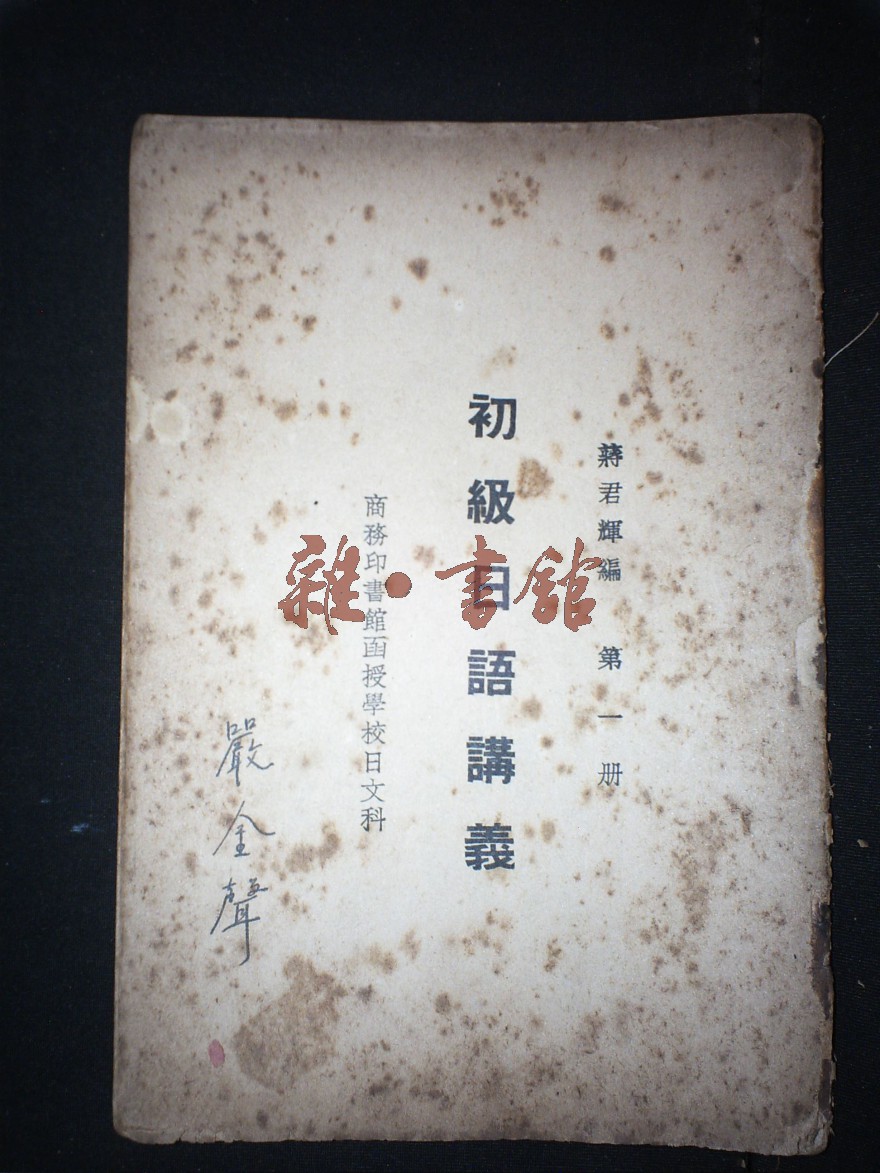 蔣君輝編　第一册
初級日語講義
商務印書館函授學校日文科
嚴金聲
雜·書館